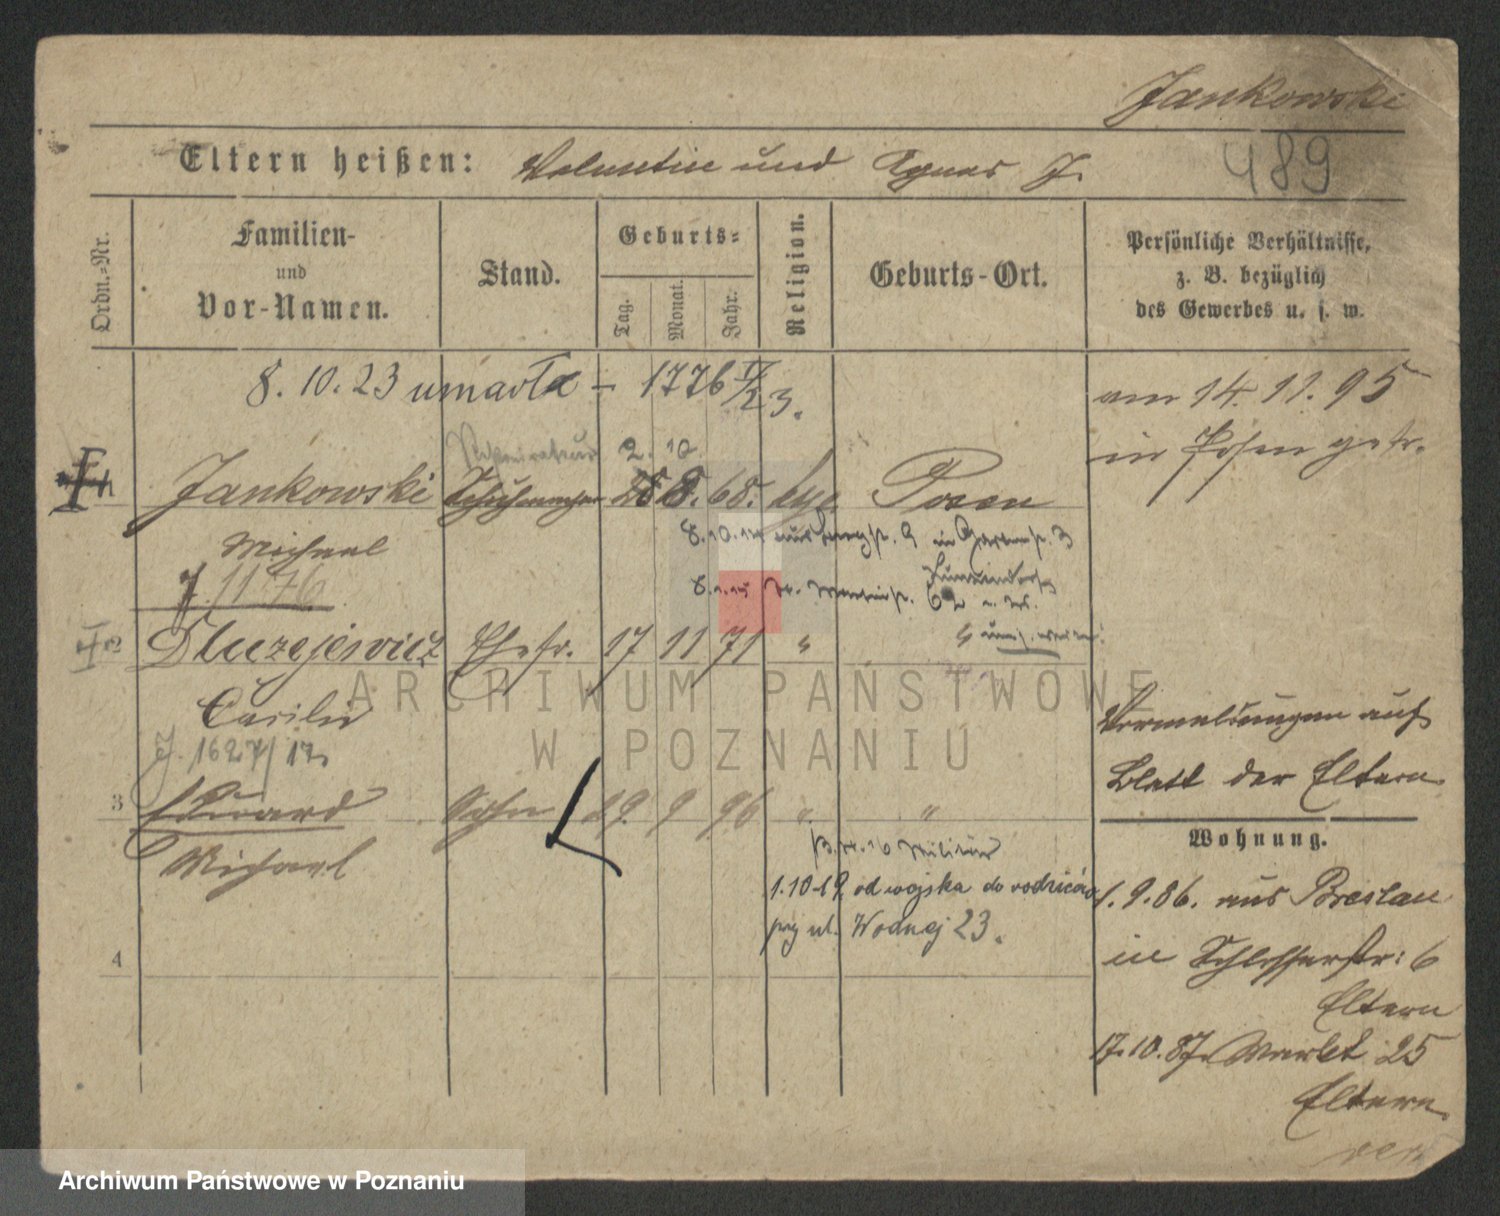 Jankowski
Eltern heißen: Valentin und Agnes J.
489
Ordn.-Nr.
Familien- und Vor-Namen.
Stand.
Geburts-
Tag.
Monat.
Jahr.
Religion.
Geburts-Ort.
Persönliche Verhältnisse, z. B. bezüglich des Gewerbes u. s. w.
8. 10. 23 umarła - 1776 V/23.
am 14. 11. 95
in Posen getr.
2. 10.
Jankowski Schuhmacher 28 8. 68. Posen
Michael
J. 1176
8.10.14 aus 9 in Gartenstr. 3
8.1.15 St. Martinstr. 62
2 Dluzejewicz Ehefr. 17 11 71 "
Cäcilie
J. 1627/17
Vermeldungen auf
Blatt der Eltern
3 Eduard Sohn 29. 9 96 " "
Michael
Militär
1.10.19 od wojska do rodziców
przy ul. Wodnej 23.
4
Wohnung.
1. 9. 86. aus Breslau
in Schlosserstr: 6
Eltern
17. 10. 87. Markt 25
Eltern
ARCHIWUM PAŃSTWOWE
W POZNANIU
Archiwum Państwowe w Poznaniu